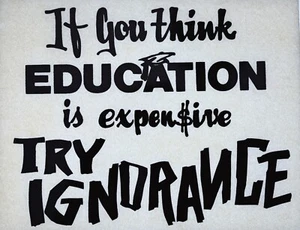 If you think
EDUCATION
is expen$ive
TRY
IGNORANCE